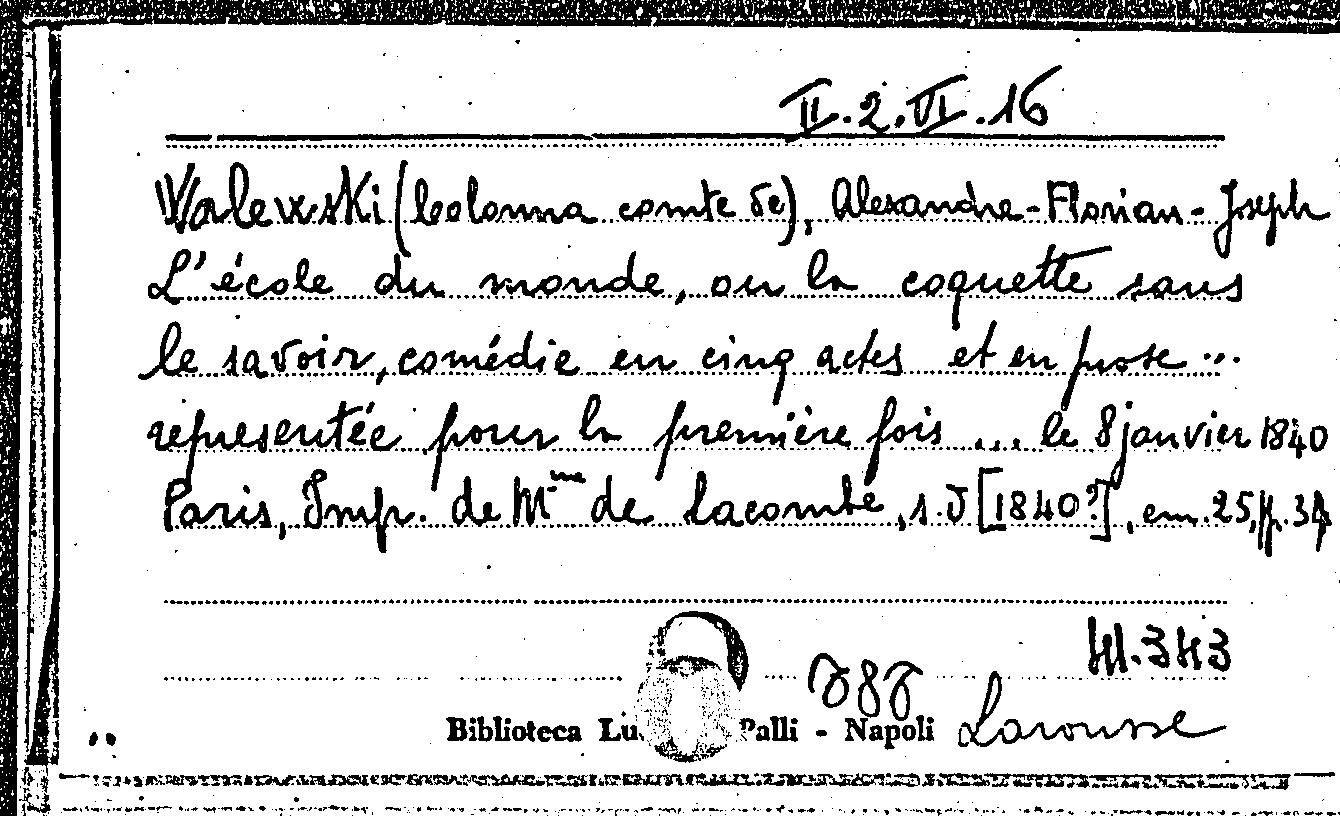 II.2.VI.16
Walewski (Colonna comte de), Alexandre-Florian-Joseph
L'école du monde, ou la coquette sans
le savoir, comédie en cinq actes et en prose ...
representée pour la première fois ... le 8 janvier 1840
Paris, Imp. de Mme de Lacombe, s.d [1840?], cm. 25, pp. 34
787
Biblioteca Lu Palli - Napoli Larousse